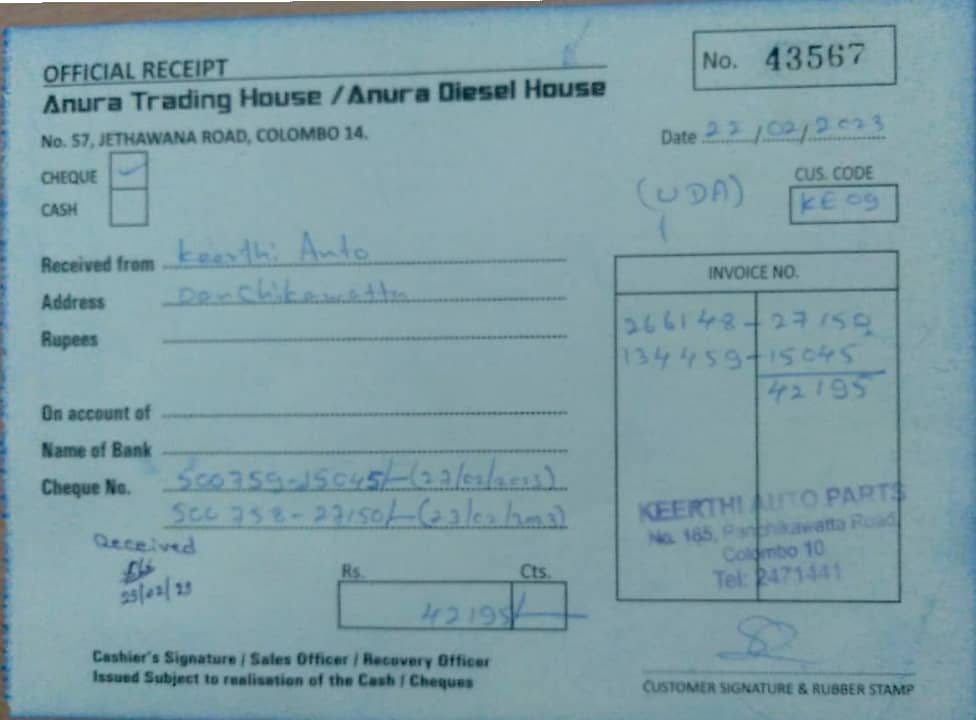 OFFICIAL RECEIPT
No. 43567
Anura Trading House / Anura Diesel House
No. 57, JETHAWANA ROAD, COLOMBO 14.
Date 22/02/2023
CHEQUE
CASH
(UDA)
CUS. CODE
KE 09
Received from Keerthi Auto
Address Panchikawatta
Rupees
INVOICE NO.
266148 - 27150
134459 - 15045
42195
On account of
Name of Bank
Cheque No. 500759-15045/-(27/02/2023)
500758-27150/-(23/02/2023)
KEERTHI AUTO PARTS
No. 185, Panchikawatta Road,
Colombo 10
Tel: 2471441
Received
23/02/23
Rs. Cts.
42195/-
Cashier's Signature / Sales Officer / Recovery Officer
Issued Subject to realisation of the Cash / Cheques
CUSTOMER SIGNATURE & RUBBER STAMP